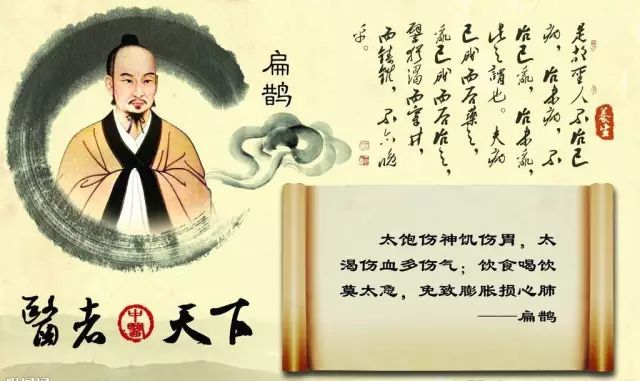 扁鹊
是故聖人不治已
病，治未病，不
治已亂，治未亂，
此之謂也。夫病
已成而后藥之，
亂已成而后治之，
譬猶渴而穿井，
而鑄錐，不亦晚
乎。
養生
太饱伤神饥伤胃，太
渴伤血多伤气；饮食喝饮
莫太急，免致膨胀损心肺
——扁鹊
醫者
中醫
天下